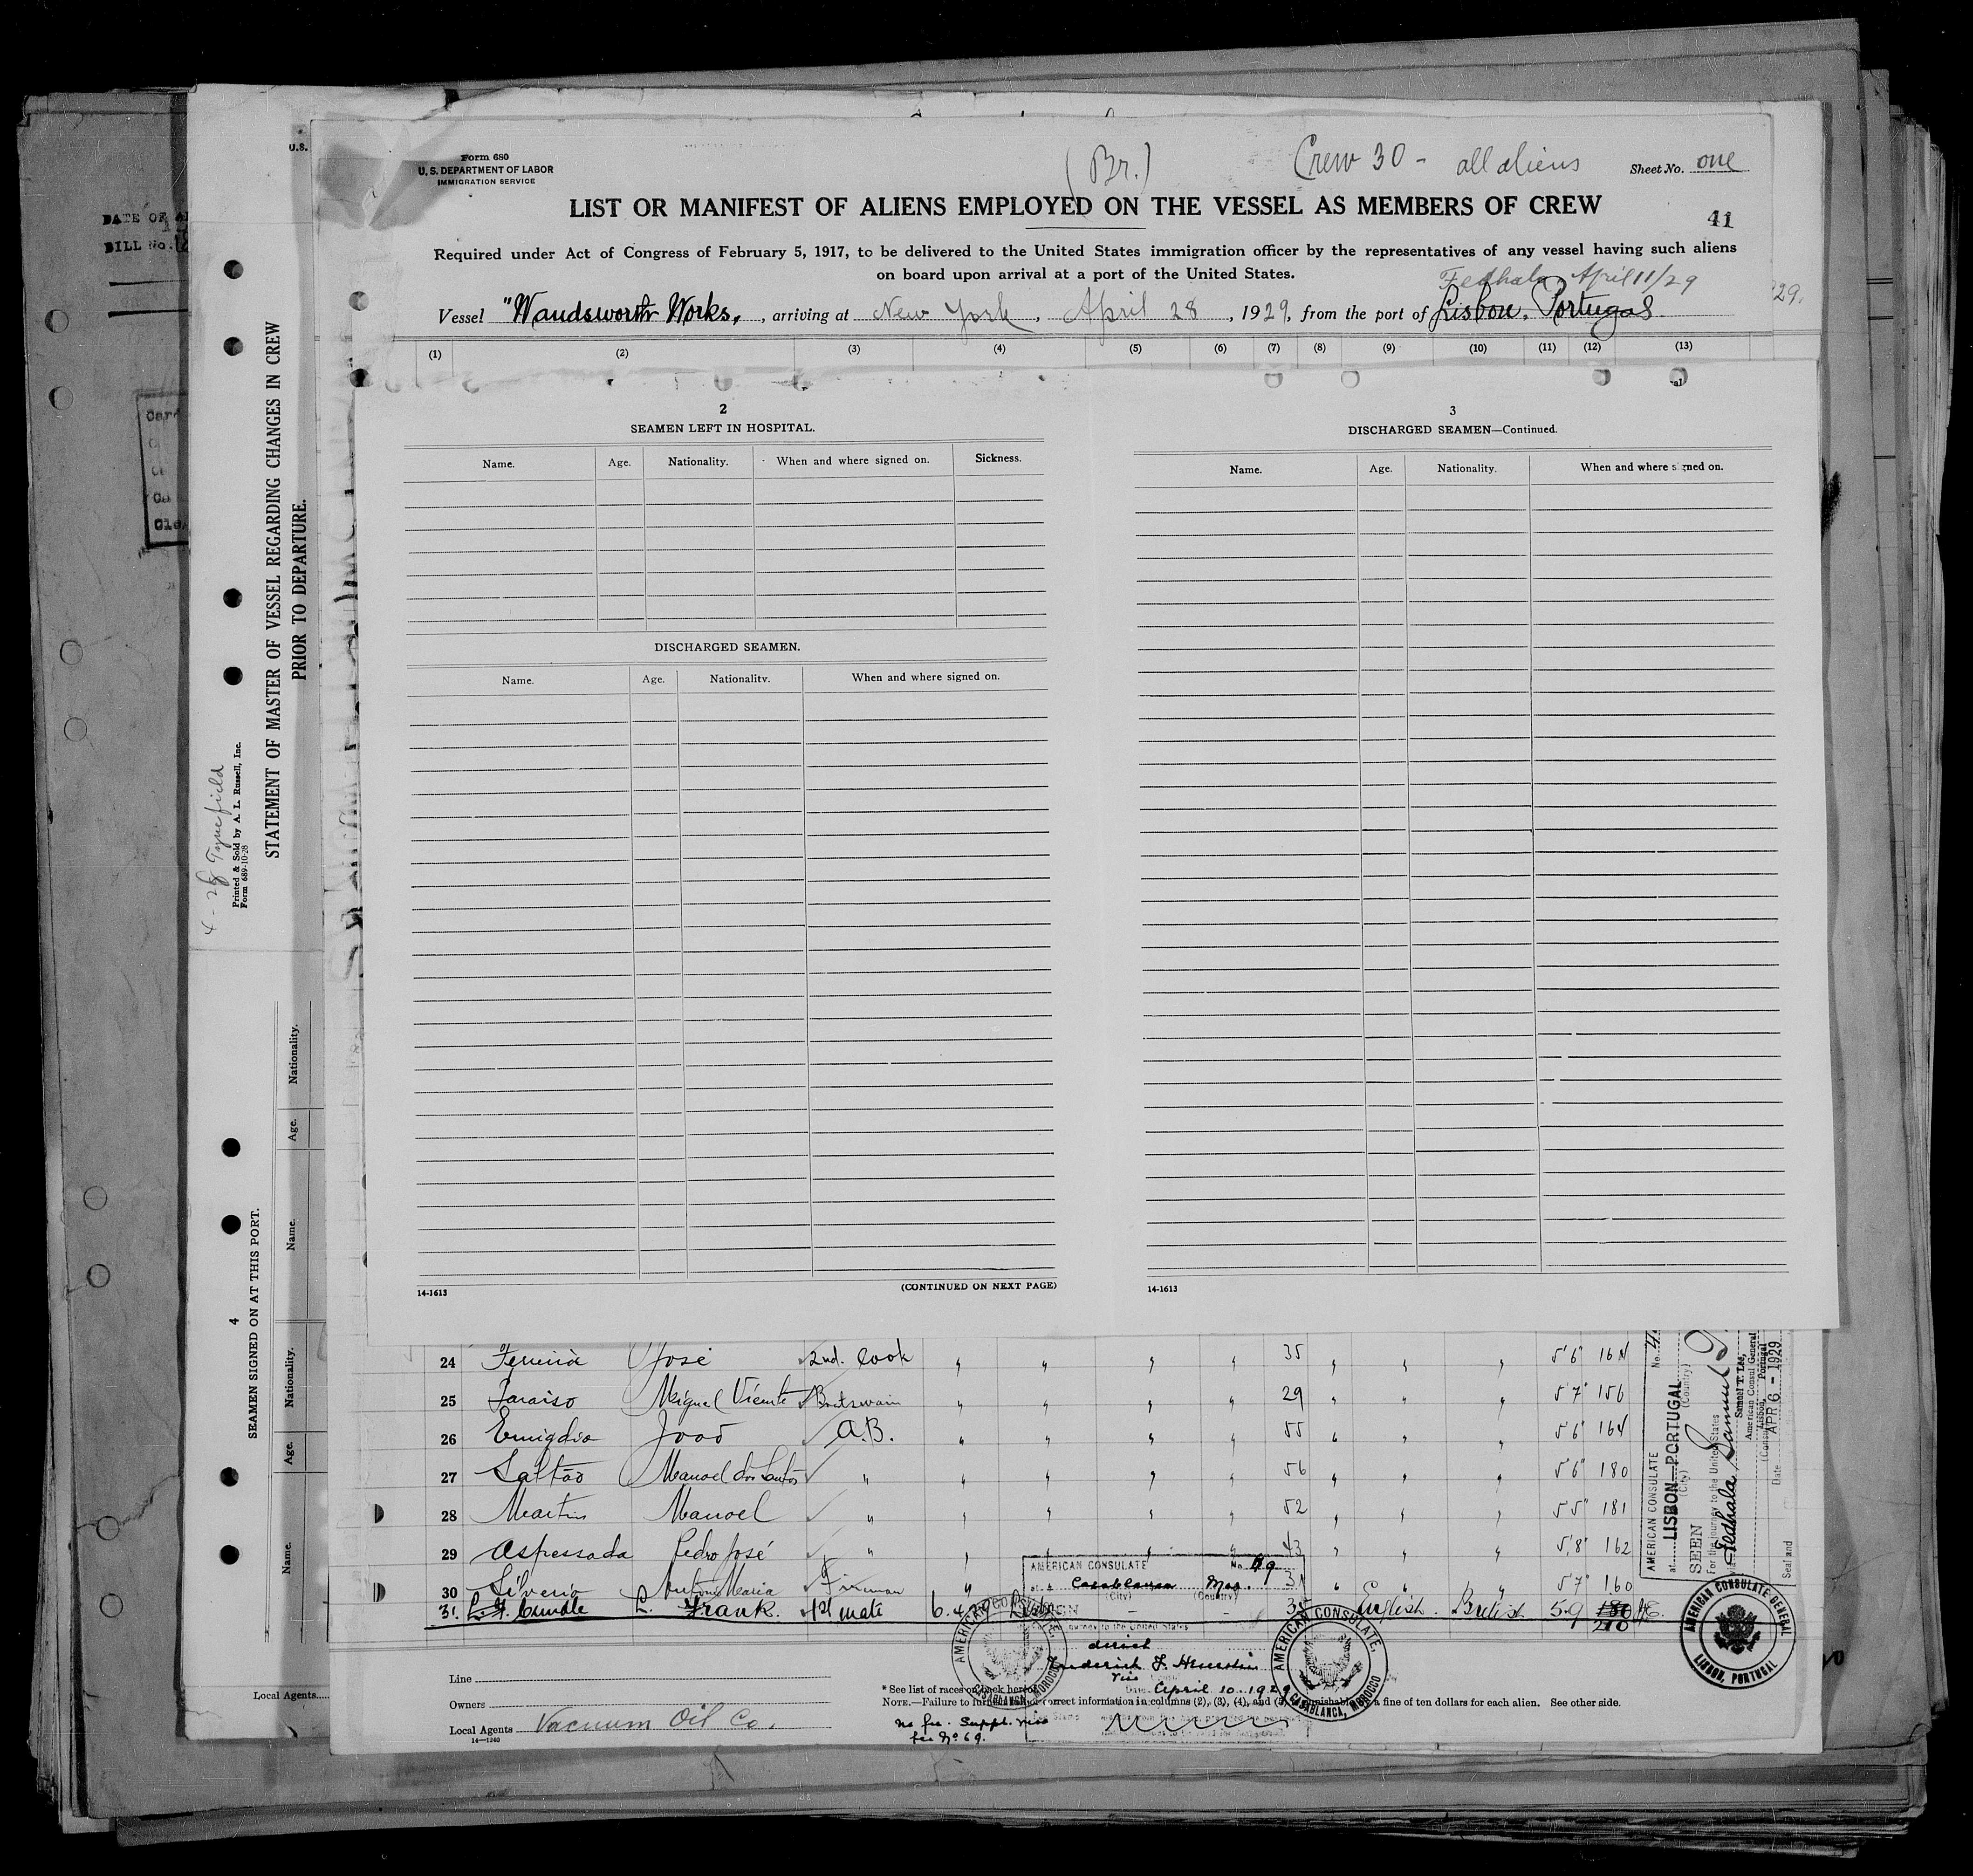 U.S.
Form 680
U. S. DEPARTMENT OF LABOR
IMMIGRATION SERVICE
(Br.)
Crew 30 - all aliens
Sheet No. one
LIST OR MANIFEST OF ALIENS EMPLOYED ON THE VESSEL AS MEMBERS OF CREW
41
Required under Act of Congress of February 5, 1917, to be delivered to the United States immigration officer by the representatives of any vessel having such aliens
on board upon arrival at a port of the United States.
Fedhala April 11/29
Vessel "Wandsworth Works, , arriving at New York , April 28 , 1929, from the port of Lisbon. Portugal
29.
(1) (2) (3) (4) (5) (6) (7) (8) (9) (10) (11) (12) (13)
DATE OF
BILL No.
STATEMENT OF MASTER OF VESSEL REGARDING CHANGES IN CREW
PRIOR TO DEPARTURE.
4 - 28 Tynefield
Printed & Sold by A. L. Russell, Inc.
Form 689-10-28
4
SEAMEN SIGNED ON AT THIS PORT.
Name. Age. Nationality. Name. Age. Nationality.
Local Agents
2
SEAMEN LEFT IN HOSPITAL.
Name. Age. Nationality. When and where signed on. Sickness.
DISCHARGED SEAMEN.
Name. Age. Nationality. When and where signed on.
14-1613
(CONTINUED ON NEXT PAGE)
3
DISCHARGED SEAMEN—Continued.
Name. Age. Nationality. When and where signed on.
14-1613
24 José 2nd. Cook " " " " 35 " " " 5'6" 164
25 Paraiso Miguel Vicente Boatswain " " " " 29 " " " 5'7" 156
26 Emigdio João A.B. " " " " 55 " " " 5'6" 164
27 Saltão Manoel dos Santos " " " " " 56 " " " 5'6" 180
28 Martins Manoel " " " " " 52 " " " 5'5" 181
29 Aspessada Pedro José " " " " " 43 " " " 5'8" 162
30 Silverio Antonio Maria Fireman " 31 " " " 5'7" 160
31. L. Frank. 1st mate 35 English. British 5-9 180
210
AMERICAN CONSULATE
No. 69
at Casablanca Mor.
(City) (Country)
journey to the United States
April 10. 1929
AMERICAN CONSULATE, CASABLANCA, MOROCCO
AMERICAN CONSULATE, CASABLANCA, MOROCCO
AMERICAN CONSULATE GENERAL LISBON, PORTUGAL
AMERICAN CONSULATE
at LISBON-PORTUGAL
(City) (Country)
No.
SEEN
For the journey to the United States
Fedhala
Samuel T. Lee,
American Consul General
Lisbon, Portugal
Date APR 6 - 1929
Seal and
Line
Owners
Local Agents Vacuum Oil Co.
14—1240
* See list of races on back hereof
NOTE.—Failure to furnish full or correct information in columns (2), (3), (4), and (5) punishable by a fine of ten dollars for each alien. See other side.
No fee. Suppl. visa
fee No 69.